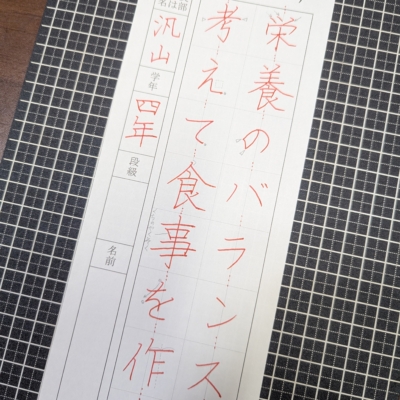 栄養のバランス
考えて食事を作
汎山
学年
四年
段級
名前